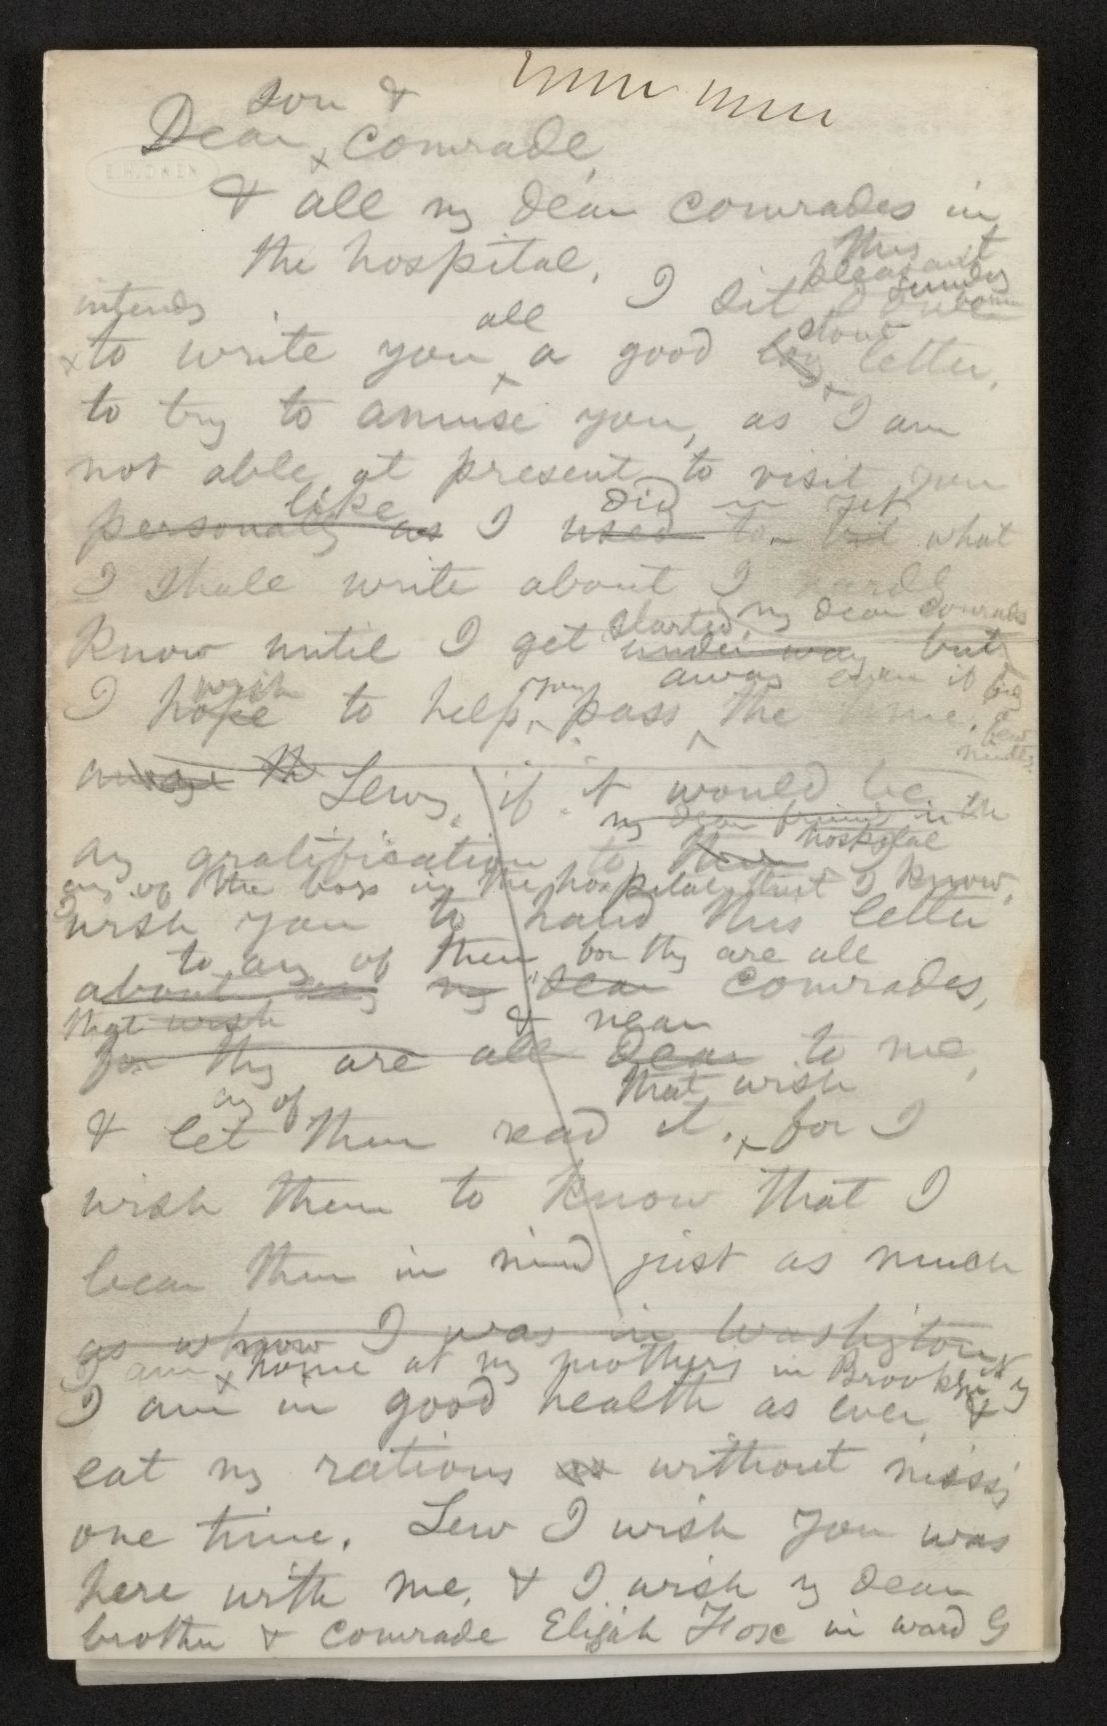 son &
Dear comrade,
& all my dear comrades in
the hospital,
this
pleasant
I sit
intends
all
stout
to write you a good long letter,
to try to amuse you, as I am
not able at present to visit you
like did yet
personally as I used to but what
I shall write about I hardly
started, my dear comrades
know until I get under way but
wish you away even if
I hope to help pass the time,
few
minutes.
Lewy, if it would be
my dear friends in the
hospital
any gratification to
any of the boys in the hospital that I know,
I wish you to hand this letter
to any of them for they are all
about my dear comrades,
that wish & near
for they are all dear to me,
any of that wish
& let them read it, for I
wish them to know that I
bear them in mind just as much
as when I was in Washington
I am now home at my mother's in Brooklyn N Y
I am in good health as ever &
eat my rations without missing
one time. Lew I wish you was
here with me, & I wish my dear
brother & comrade Elijah Fox in ward G